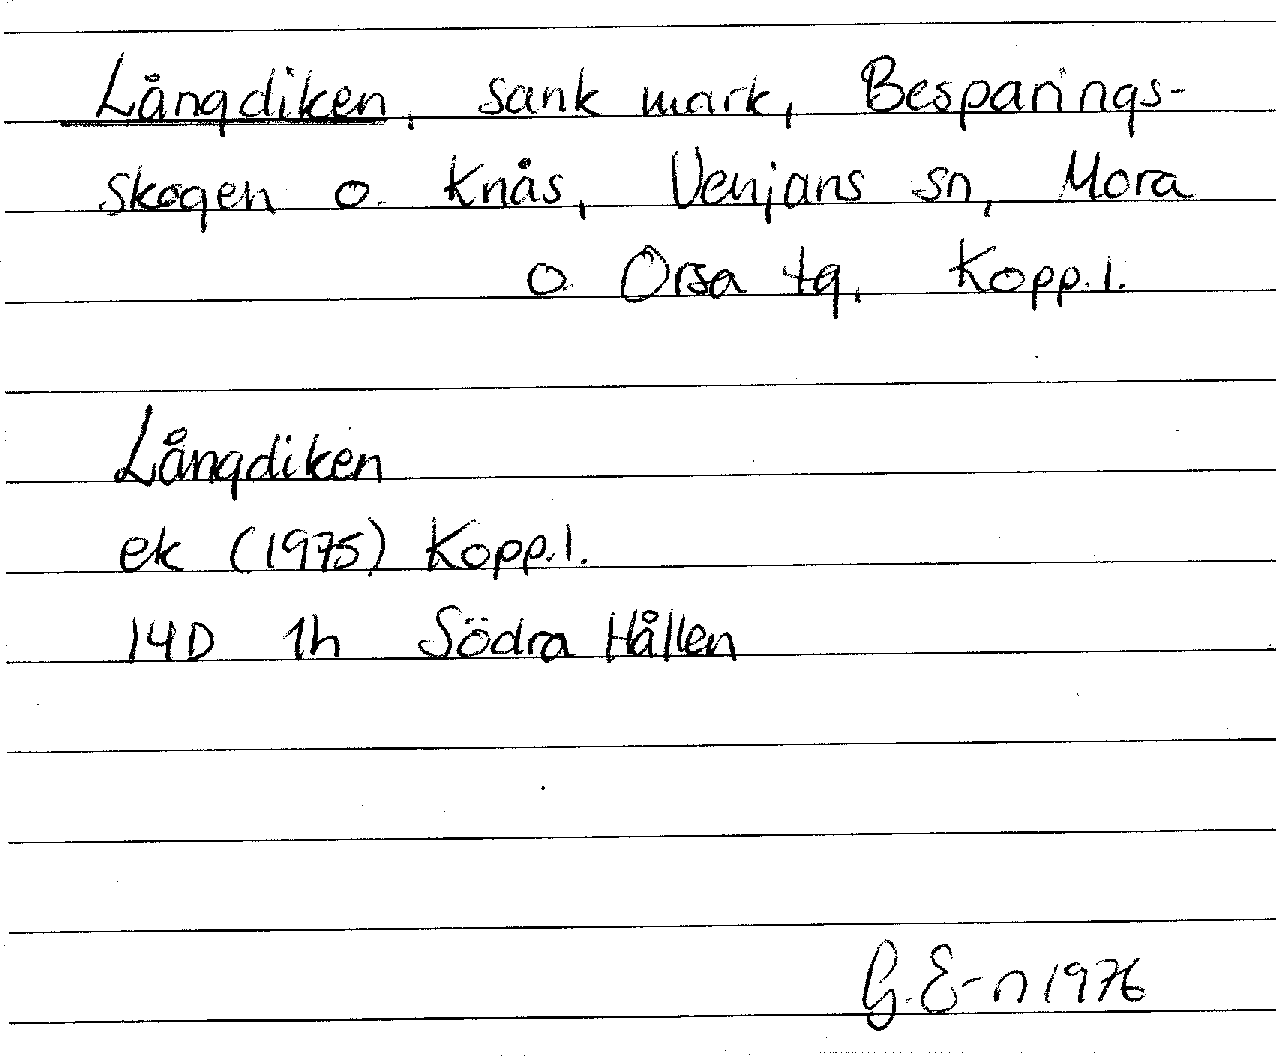 Långdiken, sank mark, Besparings-
skogen o. Knås, Venjans sn, Mora
o. Orsa tg, Kopp.l.
Långdiken
ek (1975) Kopp.l.
14D 1h Södra Hållen
G. E-n 1976